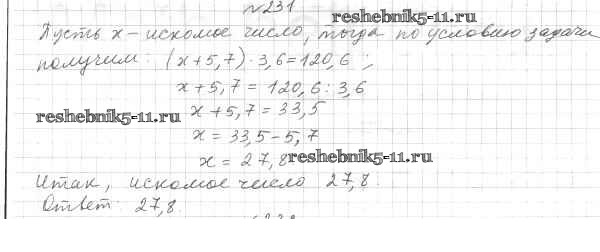 №231
reshebnik5-11.ru
Пусть x – искомое число, тогда по условию задачи
получим: (x+5,7)·3,6=120,6;
x+5,7=120,6:3,6
x+5,7=33,5
reshebnik5-11.ru
x=33,5-5,7
x=27,8
reshebnik5-11.ru
Итак, искомое число 27,8.
Ответ: 27,8.